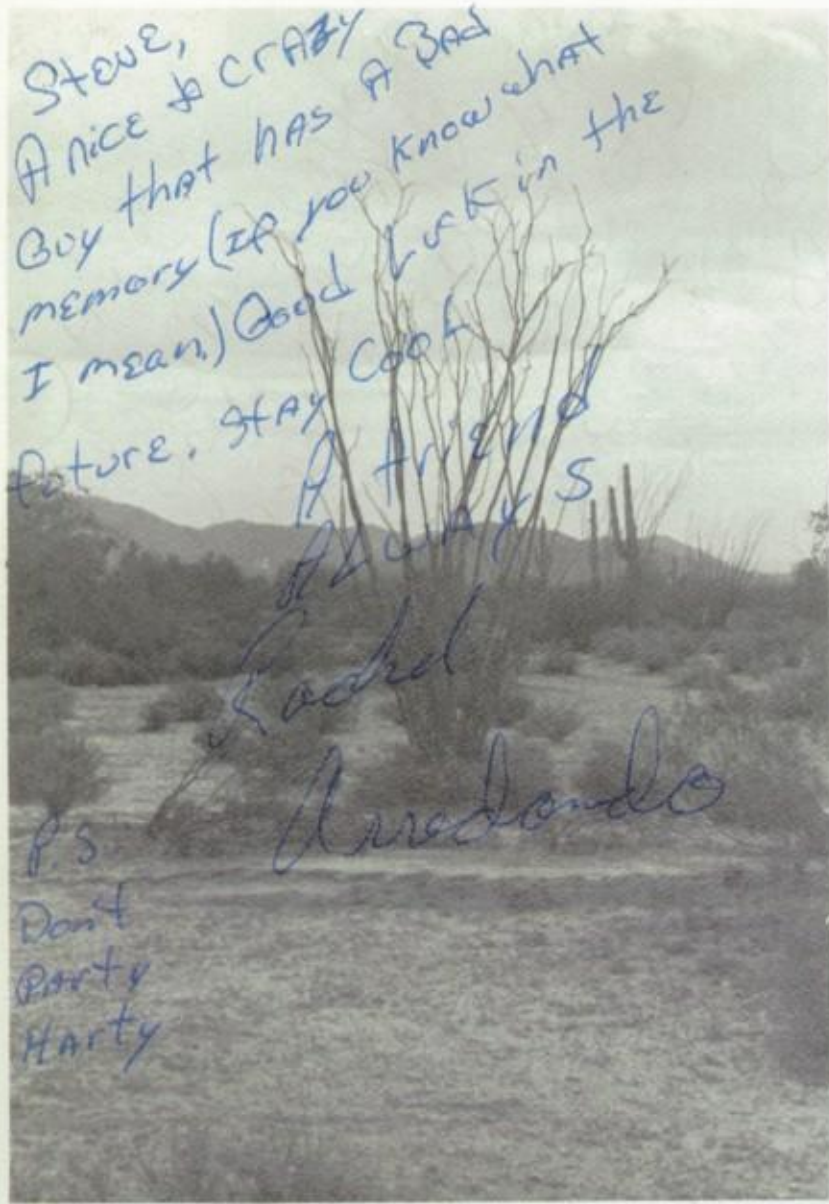 Steve,
A nice & crazy
Guy that has A Bad
memory (If you know what
I mean.) Good Luck in the
future. Stay Cool
A friend
Always
Arredondo
P.S
Don't
Party
Harty